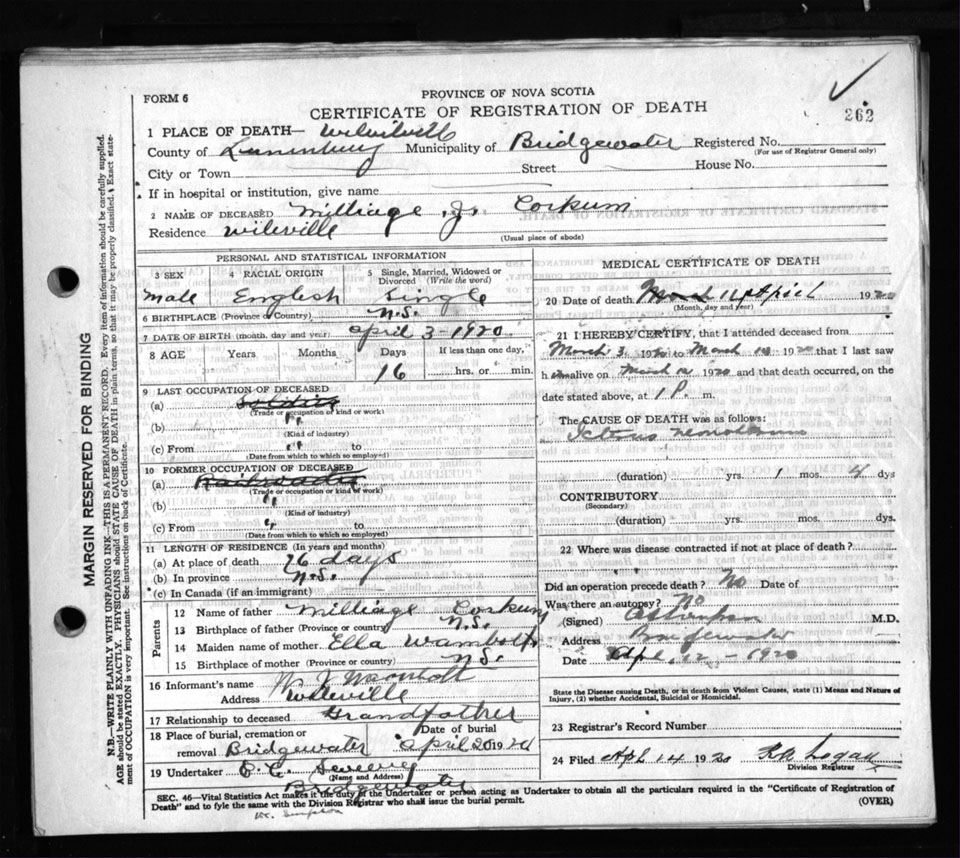 FORM 6
PROVINCE OF NOVA SCOTIA
CERTIFICATE OF REGISTRATION OF DEATH
262
1 PLACE OF DEATH—
County of Lunenburg Municipality of Bridgewater Registered No.
(For use of Registrar General only)
City or Town Street House No.
If in hospital or institution, give name
2 NAME OF DECEASED Milliage J. Corkum
Residence Wileville
(Usual place of abode)
PERSONAL AND STATISTICAL INFORMATION
3 SEX 4 RACIAL ORIGIN 5 Single, Married, Widowed or
Divorced (Write the word)
Male English Single
6 BIRTHPLACE (Province or Country) N.S.
7 DATE OF BIRTH (month, day and year) April 3-1920
8 AGE Years Months Days If less than one day,
16 hrs. or min.
9 LAST OCCUPATION OF DECEASED
(a) Soldier
(Trade or occupation or kind of work)
(b) "
(Kind of industry)
(c) From " to
(Date from which to which so employed)
10 FORMER OCCUPATION OF DECEASED
(a)
(Trade or occupation or kind of work)
(b) "
(Kind of industry)
(c) From " to
(Date from which to which so employed)
11 LENGTH OF RESIDENCE (In years and months)
(a) At place of death 16 days
(b) In province N.S.
(c) In Canada (if an immigrant)
Parents
12 Name of father Milliage Corkum
13 Birthplace of father (Province or country) N.S.
14 Maiden name of mother Ella Wambolt
15 Birthplace of mother (Province or country) N.S.
16 Informant's name W. J. Wambolt
Address Wileville
17 Relationship to deceased Grandfather
18 Place of burial, cremation or Date of burial
removal Bridgewater April 20 1920
19 Undertaker
(Name and Address)
Bridgewater
MEDICAL CERTIFICATE OF DEATH
20 Date of death April 1920
(Month, day and year)
21 I HEREBY CERTIFY, that I attended deceased from
March 3, 1920 to March 1920 that I last saw
h alive on March 1920 and that death occurred, on the
date stated above, at 1 P. m.
The CAUSE OF DEATH was as follows:
Icterus neonatorum
(duration) yrs. 1 mos. 4 dys
CONTRIBUTORY
(Secondary)
(duration) yrs. mos. dys.
22 Where was disease contracted if not at place of death?
Did an operation precede death? No Date of
Was there an autopsy? No
(Signed) M.D.
Address Bridgewater
Date Apl. 12-1920
State the Disease causing Death, or in death from Violent Causes, state (1) Means and Nature of
Injury, (2) whether Accidental, Suicidal or Homicidal.
23 Registrar's Record Number
24 Filed Apl 14 1920 Logan
Division Registrar
SEC. 46—Vital Statistics Act makes it the duty of the Undertaker or person acting as Undertaker to obtain all the particulars required in the "Certificate of Registration of
Death" and to fyle the same with the Division Registrar who shall issue the burial permit. (OVER)
Dr. Simpson
MARGIN RESERVED FOR BINDING
N.B.—WRITE PLAINLY WITH UNFADING INK—THIS IS A PERMANENT RECORD. Every item of information should be carefully supplied.
AGE should be stated EXACTLY. PHYSICIANS should STATE CAUSE OF DEATH in plain terms, so that it may be properly classified. Exact state-
ment of OCCUPATION is very important. See instructions on back of Certificate.